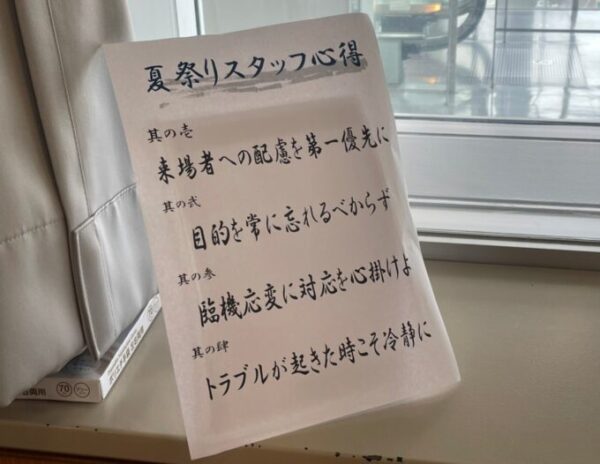 夏祭りスタッフ心得
其の壱
来場者への配慮を第一優先に
其の弐
目的を常に忘れるべからず
其の参
臨機応変に対応を心掛けよ
其の肆
トラブルが起きた時こそ冷静に
70